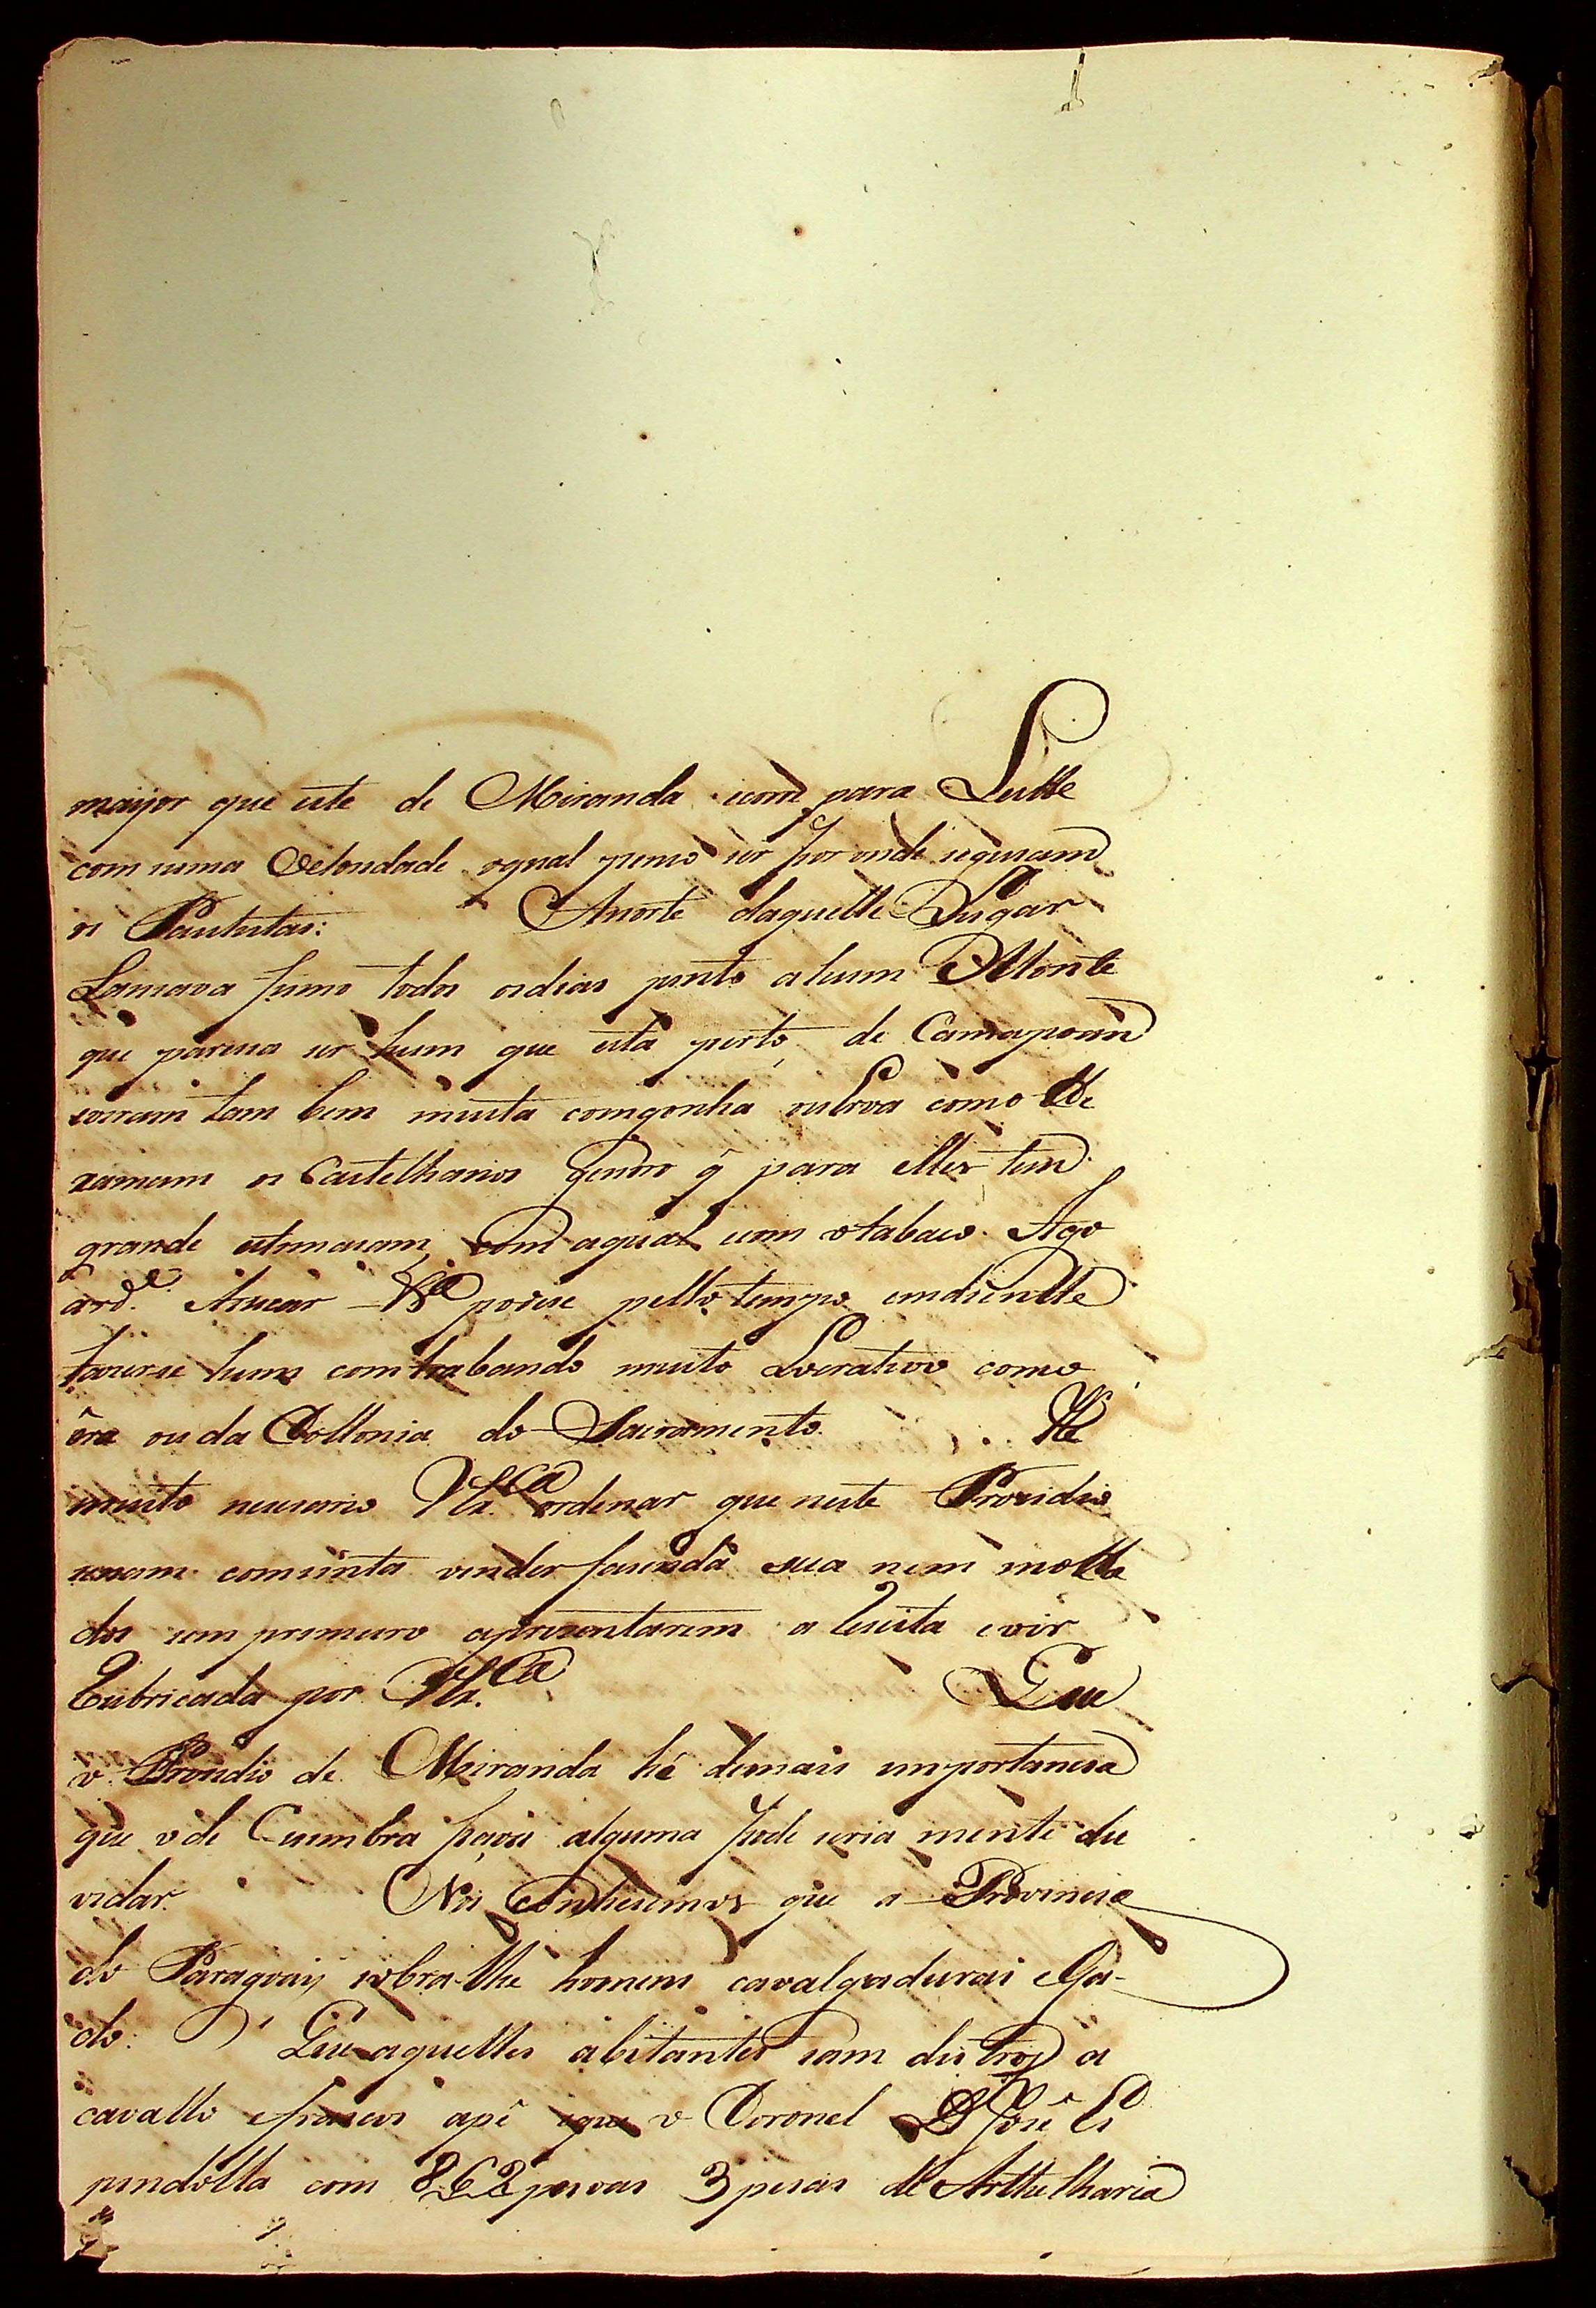 mayor que este de Miranda com para Leste
com uma qual penso ser por onde seguiam
os Paulistas: Anorte daquelle Lugar
Lansava fumo todos osdias junto ahum Monte
que paresia ser hum que está perto de Camapoam
tam bem muita comgonha ouErva como Ɛ
os Castelhanos genero q̃ para elles tem
grande estimasam, com aqual com otabaco Ago
ard.e Asucar podese pello tempo endiente
faserse hum comtrabando muito Locrativo como
éra ouda Collonia do Sacramento. He
muito nesesario V Ex.ca ordenar que neste Prezidio
comsinta vender fasenda sua nem molha
dos sem primeiro apresentarem a Lista evir
Rubricada por V Ex.ca Que
o Prezidio de Miranda hé demais importansia
que ode Cuimbra pesoa alguma pode seria mente du
vidar. Nós Conhesemos que a Provinsia
do Paraguay sobra-lhe homens cavalgaduras eGa-
do. Que aquelles abitantes sam distros a
cavallo efrascos apé eque o Coronel D José Es
pindolla com 862 pesoas 3 pesas de Artelharia